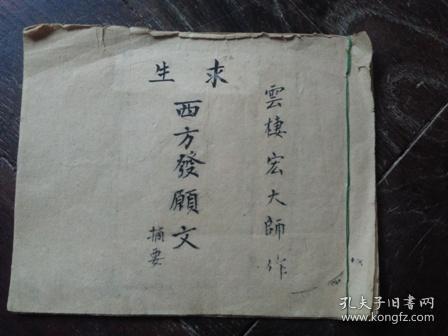 雲棲宏大師作
求生
西方發願文
摘要
孔夫子旧书网
www.kongfz.com